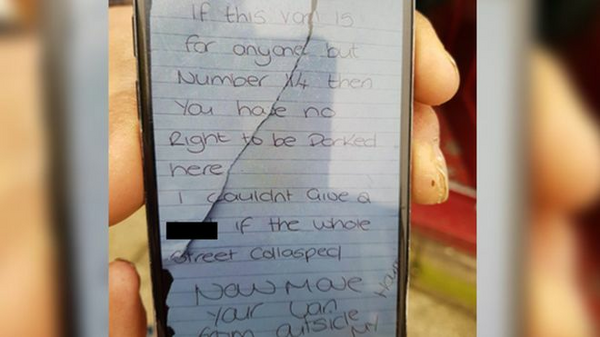 If this van is
for anyone but
Number 14 then
You have no
Right to be Parked
here
I couldnt Give a
if the whole
street Collasped
NOW MOVE
Your Van
from outside
MY